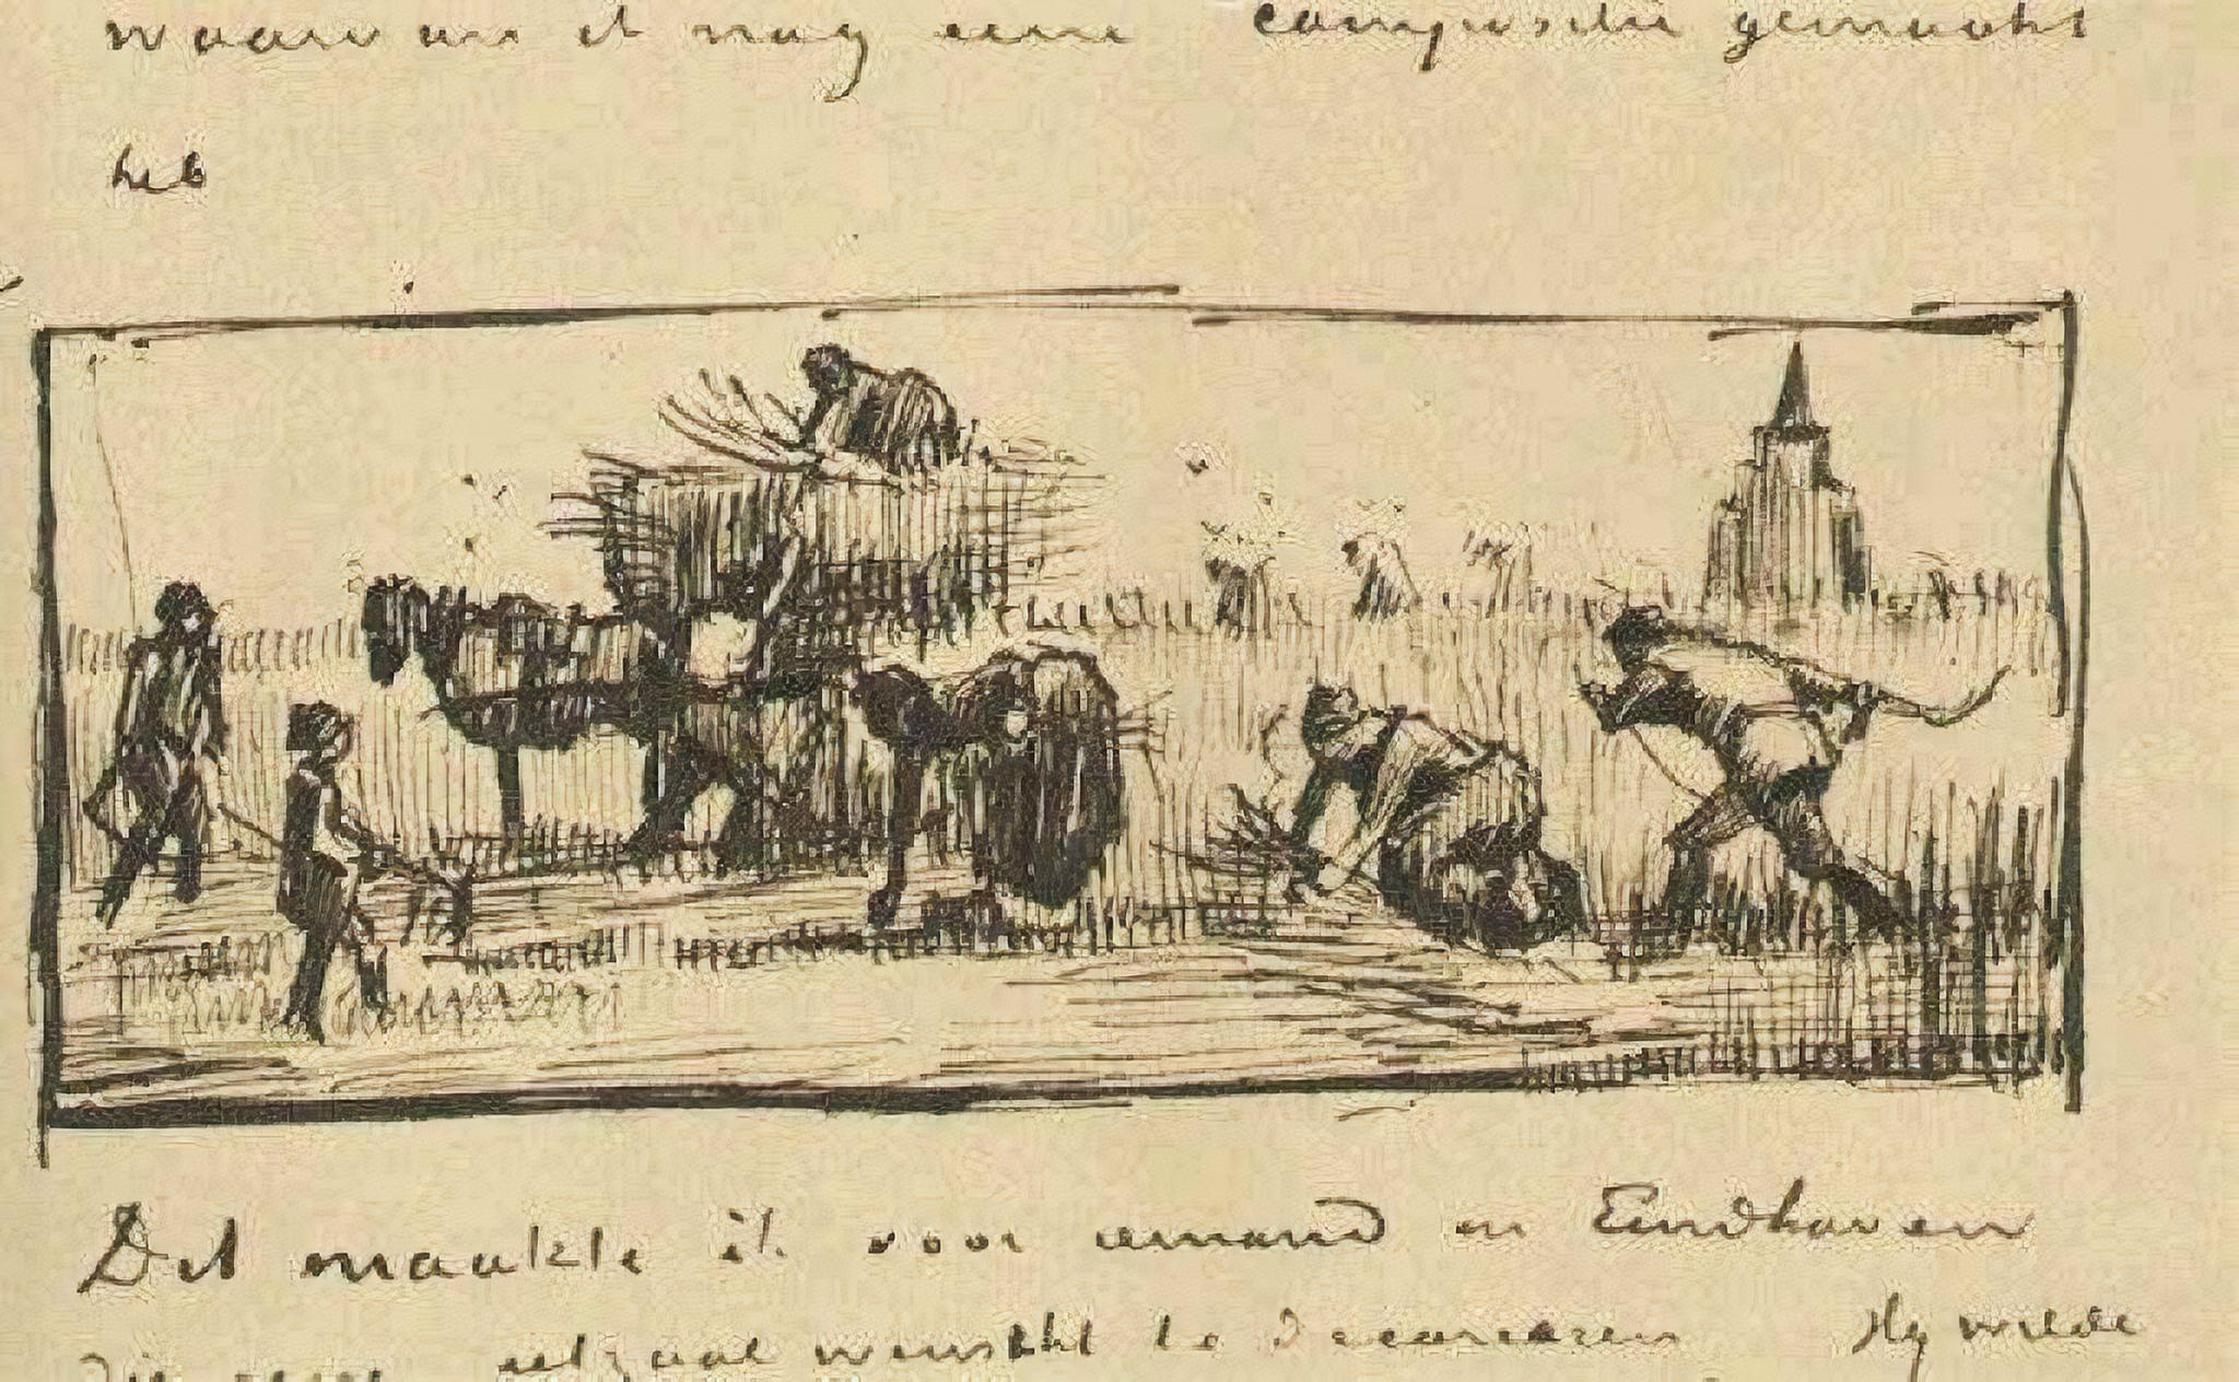 waarvan ik nog eene compositie gemaakt
heb
Dit maakte ik voor iemand in Eindhoven
die eene eetzaal wenscht te decoreeren Hy wilde